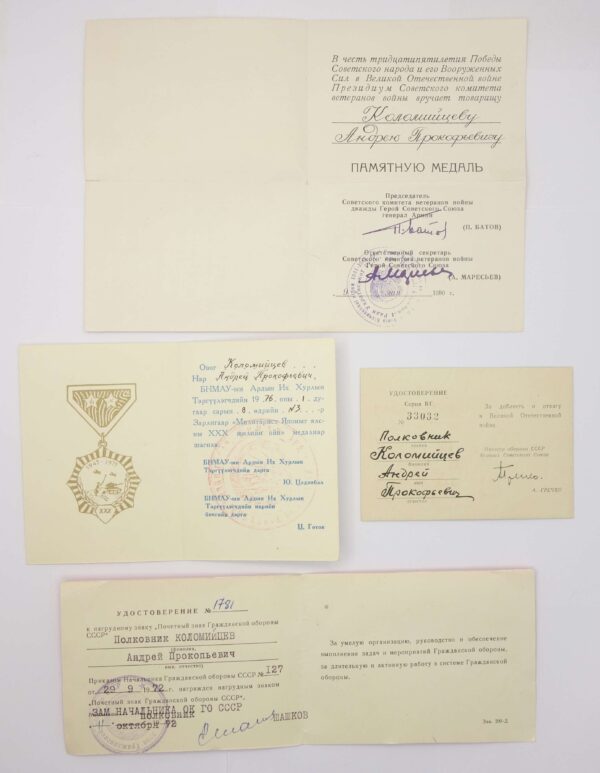 В честь тридцатипятилетия Победы
Советского народа и его Вооруженных
Сил в Великой Отечественной войне
Президиум Советского комитета
ветеранов войны вручает товарищу
Коломийцеву
Андрею Прокофьевичу
ПАМЯТНУЮ МЕДАЛЬ
Председатель
Советского комитета ветеранов войны
дважды Герой Советского Союза
генерал Армии
(П. БАТОВ)
Ответственный секретарь
Советского комитета ветеранов войны
Герой Советского Союза
(А. МАРЕСЬЕВ)
9 мая 1980 г.
Овог Коломийцев
Нэр Андрей Прокофьевич
БНМАУ-ын Ардын Их Хурлын
Тэргүүлэгчдийн 1976 оны 1 ду-
гаар сарын 8 өдрийн №3 -р
Зарлигаар «Милитарист Японыг ялс-
ны XXX жилийн ой» медалиар
шагнав.
БНМАУ-ын Ардын Их Хурлын
Тэргүүлэгчдийн дарга
Ю. Цэдэнбал
БНМАУ-ын Ардын Их Хурлын
Тэргүүлэгчдийн нарийн
бичгийн дарга
Ц. Готов
1945-1975
XXX
УДОСТОВЕРЕНИЕ
Серия ВГ
№ 33032
Полковник
Коломийцев
Андрей
Прокофьевич
За доблесть и отвагу
в Великой Отечественной
войне
Министр обороны СССР
Маршал Советского Союза
А. ГРЕЧКО
УДОСТОВЕРЕНИЕ № 1781
к нагрудному знаку „Почетный знак Гражданской обороны
СССР"
Полковник КОЛОМИЙЦЕВ
(фамилия,
Андрей Прокопьевич
имя, отчество)
Приказом Начальника Гражданской обороны СССР № 127
от 29 9 1972 г. награжден нагрудным знаком
„Почетный знак Гражданской обороны СССР".
ЗАМ НАЧАЛЬНИКА ОК ГО СССР
полковник
ШАШКОВ
октября 72
За умелую организацию, руководство и обеспечение
выполнения задач и мероприятий Гражданской обороны,
за длительную и активную работу в системе Гражданской
обороны.